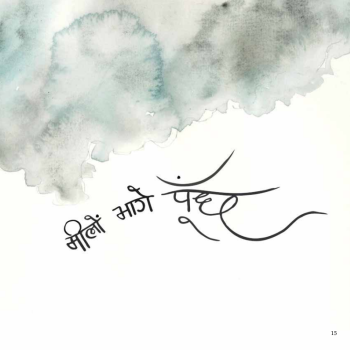 मीलों भागे पूंछ
15